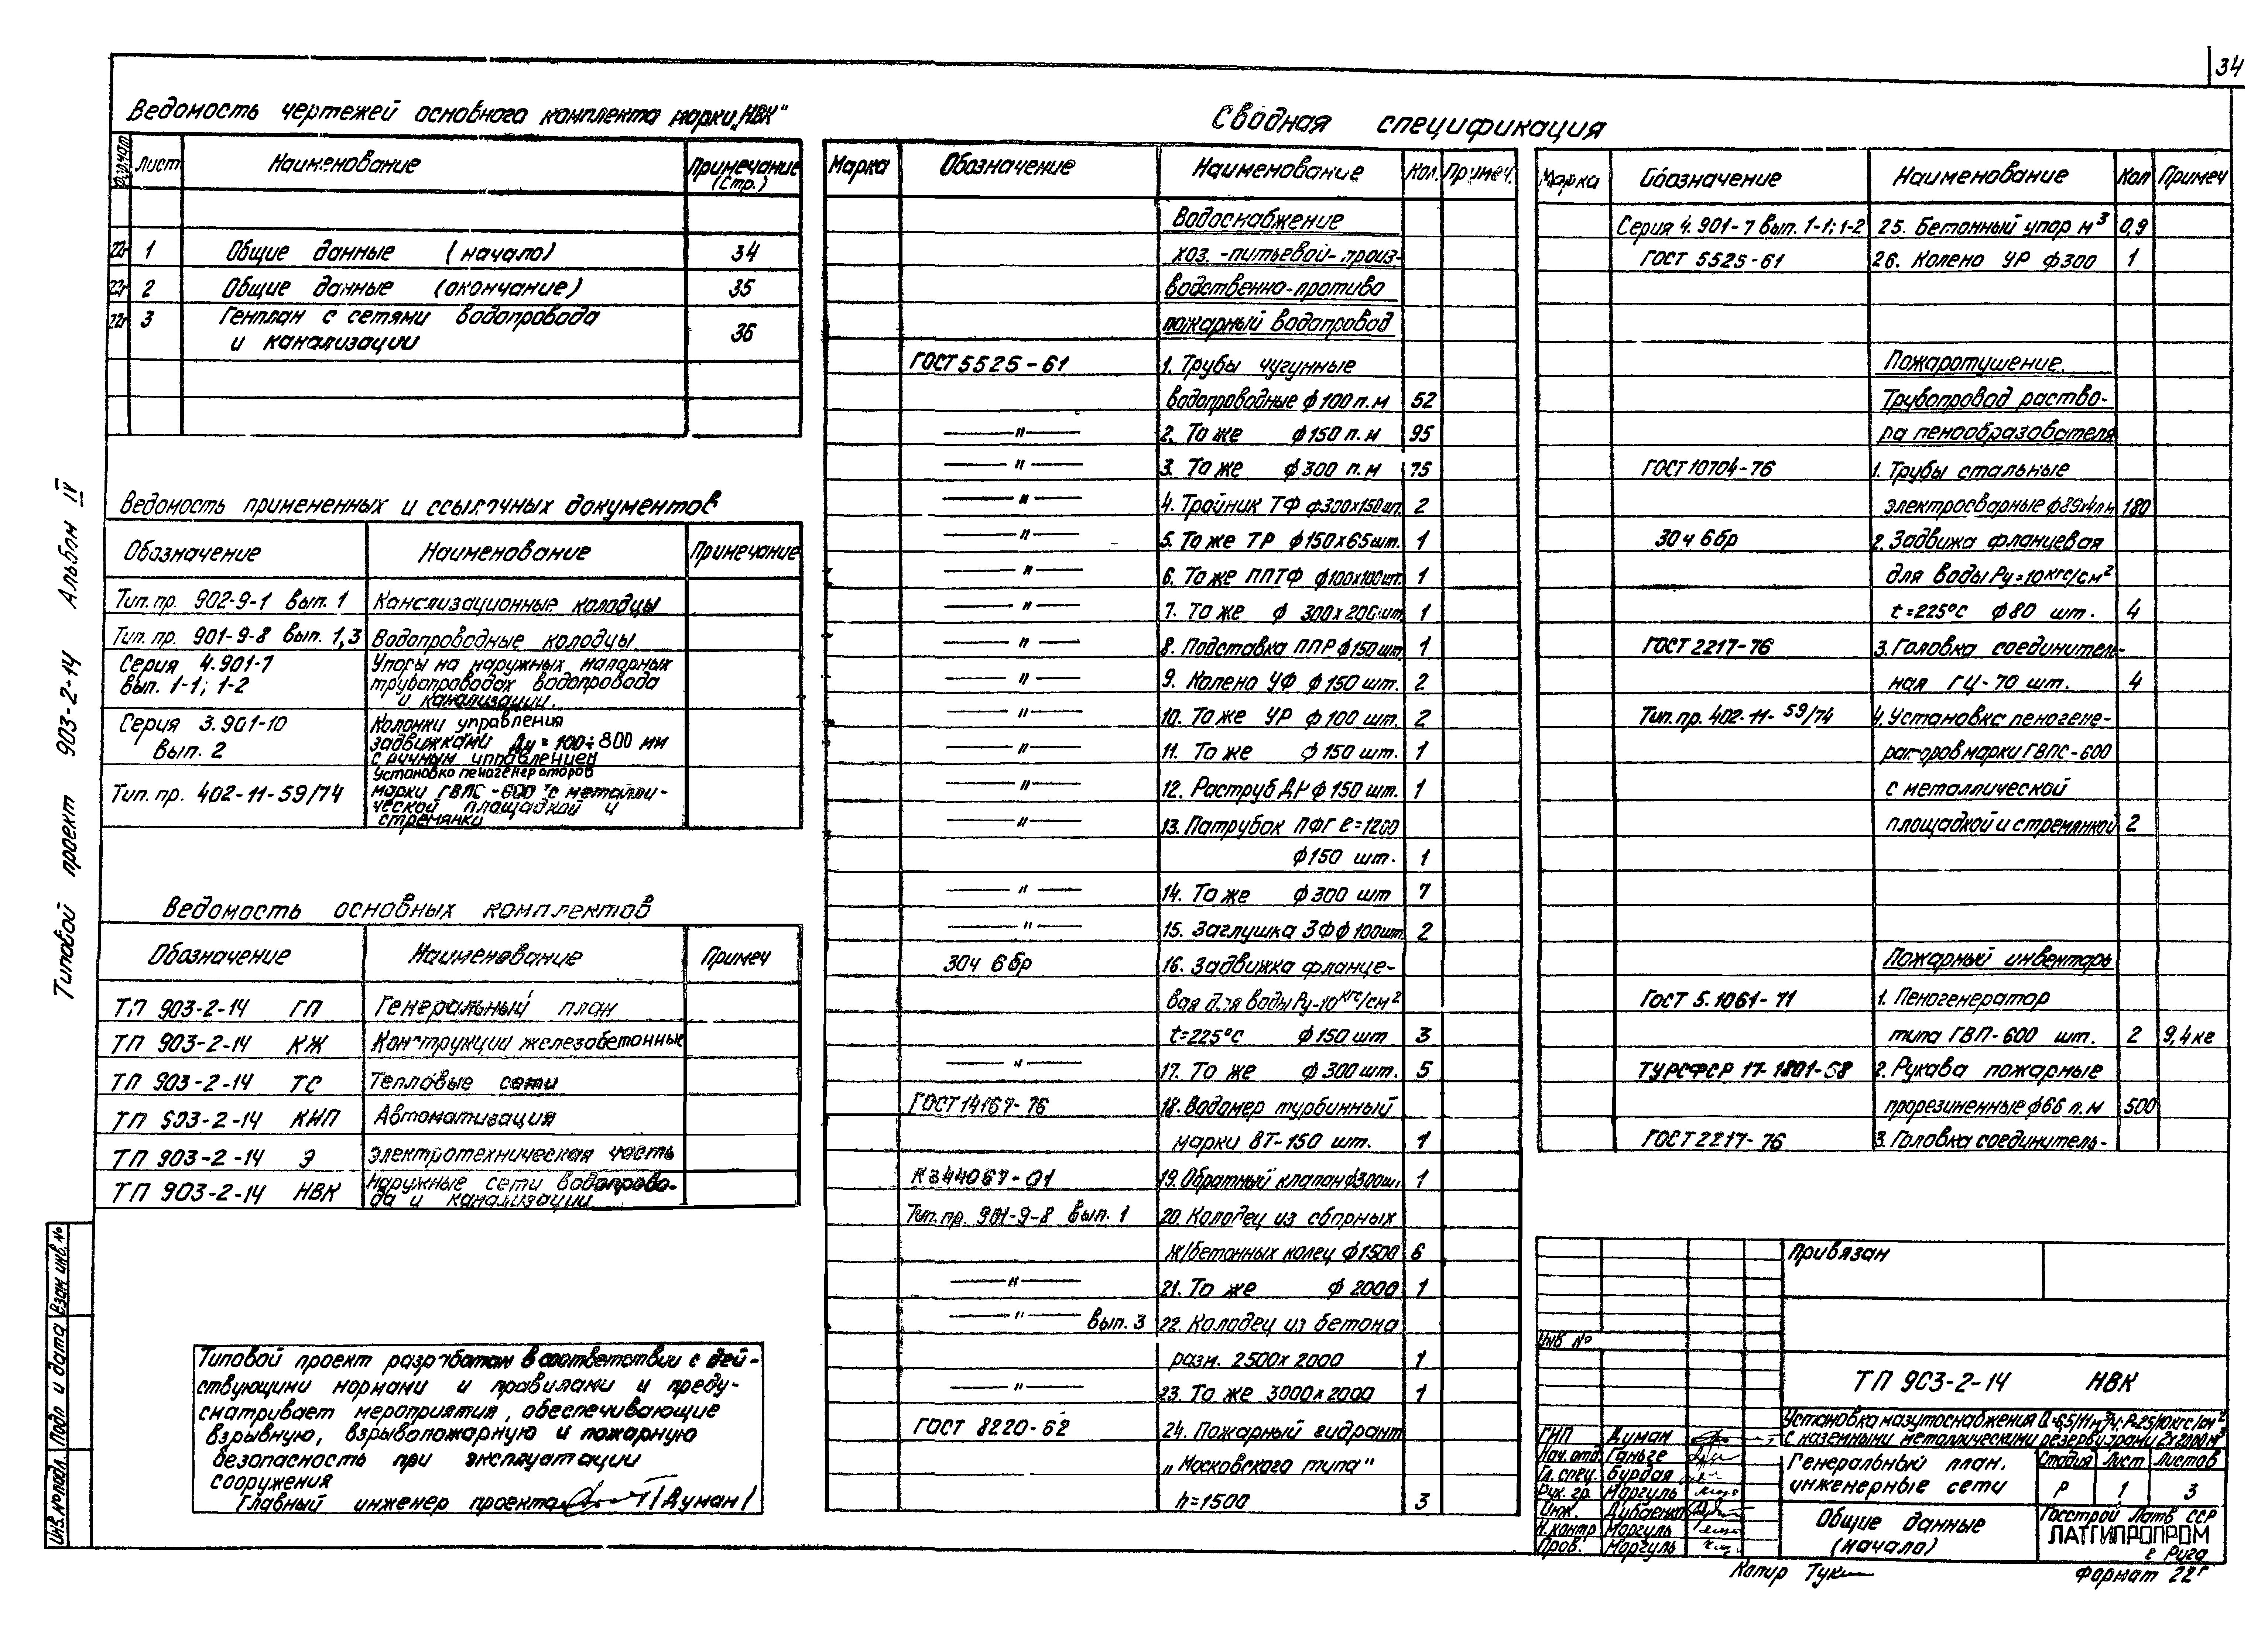 34
Ведомость чертежей основного комплекта марки „НВК"
Формат Лист Наименование Примечание (Стр.)
22г 1 Общие данные (начало) 34
22г 2 Общие данные (окончание) 35
22г 3 Генплан с сетями водопровода
и канализации 36
Ведомость примененных и ссылочных документов
Обозначение Наименование Примечание
Тип. пр. 902-9-1 вып. 1 Канализационные колодцы
Тип. пр. 901-9-8 вып. 1,3 Водопроводные колодцы
Серия 4.901-7 Упоры на наружных напорных
вып. 1-1; 1-2 трубопроводах водопровода
и канализации.
Серия 3.901-10 Колонки управления
вып. 2 задвижками Ду = 100÷800 мм
с ручным управлением
Установка пеногенераторов
Тип. пр. 402-11-59/74 марки ГВПС-600 с металли-
ческой площадкой и
стремянки
Ведомость основных комплектов
Обозначение Наименование Примеч
ТП 903-2-14 ГП Генеральный план
ТП 903-2-14 КЖ Конструкции железобетонные
ТП 903-2-14 ТС Тепловые сети
ТП 903-2-14 КИП Автоматизация
ТП 903-2-14 Э Электротехническая часть
ТП 903-2-14 НВК Наружные сети водопрово-
да и канализации
Типовой проект разработан в соответствии с дей-
ствующими нормами и правилами и преду-
сматривает мероприятия, обеспечивающие
взрывную, взрывопожарную и пожарную
безопасность при эксплуатации
сооружения
Главный инженер проекта /Думан/
Типовой проект 903-2-14 Альбом IV
Инв. № подл. Подп и дата Взам инв. №
Сводная спецификация
Марка Обозначение Наименование Кол. Примеч.
Водоснабжение
хоз.-питьевой-произ-
водственно-противо
пожарный водопровод
ГОСТ 5525-61 1. Трубы чугунные
водопроводные ф100 п.м 52
—"— 2. То же ф150 п.м 95
—"— 3. То же ф300 п.м 75
—"— 4. Тройник ТФ ф300х150 шт. 2
—"— 5. То же ТР ф150х65 шт. 1
—"— 6. То же ППТФ ф100х100 шт. 1
—"— 7. То же ф 300х200 шт 1
—"— 8. Подставка ППР ф150 шт 1
—"— 9. Колено УФ ф150 шт. 2
—"— 10. То же УР ф100 шт. 2
—"— 11. То же ф150 шт. 1
—"— 12. Раструб ДР ф150 шт. 1
—"— 13. Патрубок ПФГ ℓ=1200
ф150 шт. 1
—"— 14. То же ф300 шт 7
—"— 15. Заглушка ЗФ ф100 шт. 2
30ч 6бр 16. Задвижка фланце-
вая для воды Ру-10 кгс/см²
t=225°С ф150 шт 3
—"— 17. То же ф300 шт. 5
ГОСТ 14167-76 18. Водомер турбинный
марки ВТ-150 шт. 1
КЗ44067-01 19. Обратный клапан ф300 ш. 1
Тип. пр. 901-9-8 вып. 1 20. Колодец из сборных
ж/бетонных колец ф1500 6
—"— 21. То же ф2000 1
—"— вып. 3 22. Колодец из бетона
разм. 2500х2000 1
—"— 23. То же 3000х2000 1
ГОСТ 8220-62 24. Пожарный гидрант
„Московского типа"
h=1500 3
Марка Обозначение Наименование Кол Примеч
Серия 4.901-7 вып. 1-1; 1-2 25. Бетонный упор м³ 0,9
ГОСТ 5525-61 26. Колено УР ф300 1
Пожаротушение.
Трубопровод раство-
ра пенообразователя
ГОСТ 10704-76 1. Трубы стальные
электросварные ф89х4 п.м 180
30ч 6бр 2. Задвижа фланцевая
для воды Ру=10 кгс/см²
t=225°С ф80 шт. 4
ГОСТ 2217-76 3. Головка соединитель-
ная ГЦ-70 шт. 4
Тип. пр. 402-11-59/74 4. Установка пеногене-
раторов марки ГВПС-600
с металлической
площадкой и стремянкой 2
Пожарный инвентарь
ГОСТ 5.1061-71 1. Пеногенератор
типа ГВП-600 шт. 2 9,4 кг
ТУРСФСР 17-1801-68 2. Рукава пожарные
прорезиненные ф66 п.м 500
ГОСТ 2217-76 3. Головка соединитель-
Привязан
Инв №
ТП 903-2-14 НВК
Установка мазутоснабжения Q=6,5/11 м³/ч; Р=25/10 кгс/см²
с наземными металлическими резервуарами 2х2000 м³
ГИП Думан
Нач. отд. Ганьге
Гл. спец. Бурдая
Рук. гр. Моргуль
Инж.
Н. контр Моргуль
Пров. Моргуль
Генеральный план,
инженерные сети
Стадия Лист Листов
Р 1 3
Общие данные
(начало)
Госстрой Латв ССР
ЛАТГИПРОПРОМ
г Рига
Копир Формат 22г